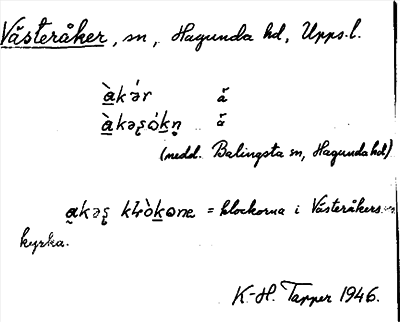 Västeråker, sn, Hagunda hd, Upps.l.
àkər ǎ
àkəşókn̥ ǎ
(medd. Balingsta sn, Hagunda hd)
akəş klòkone = klockorna i Västeråkers
kyrka.
K.-H. Tapper 1946.